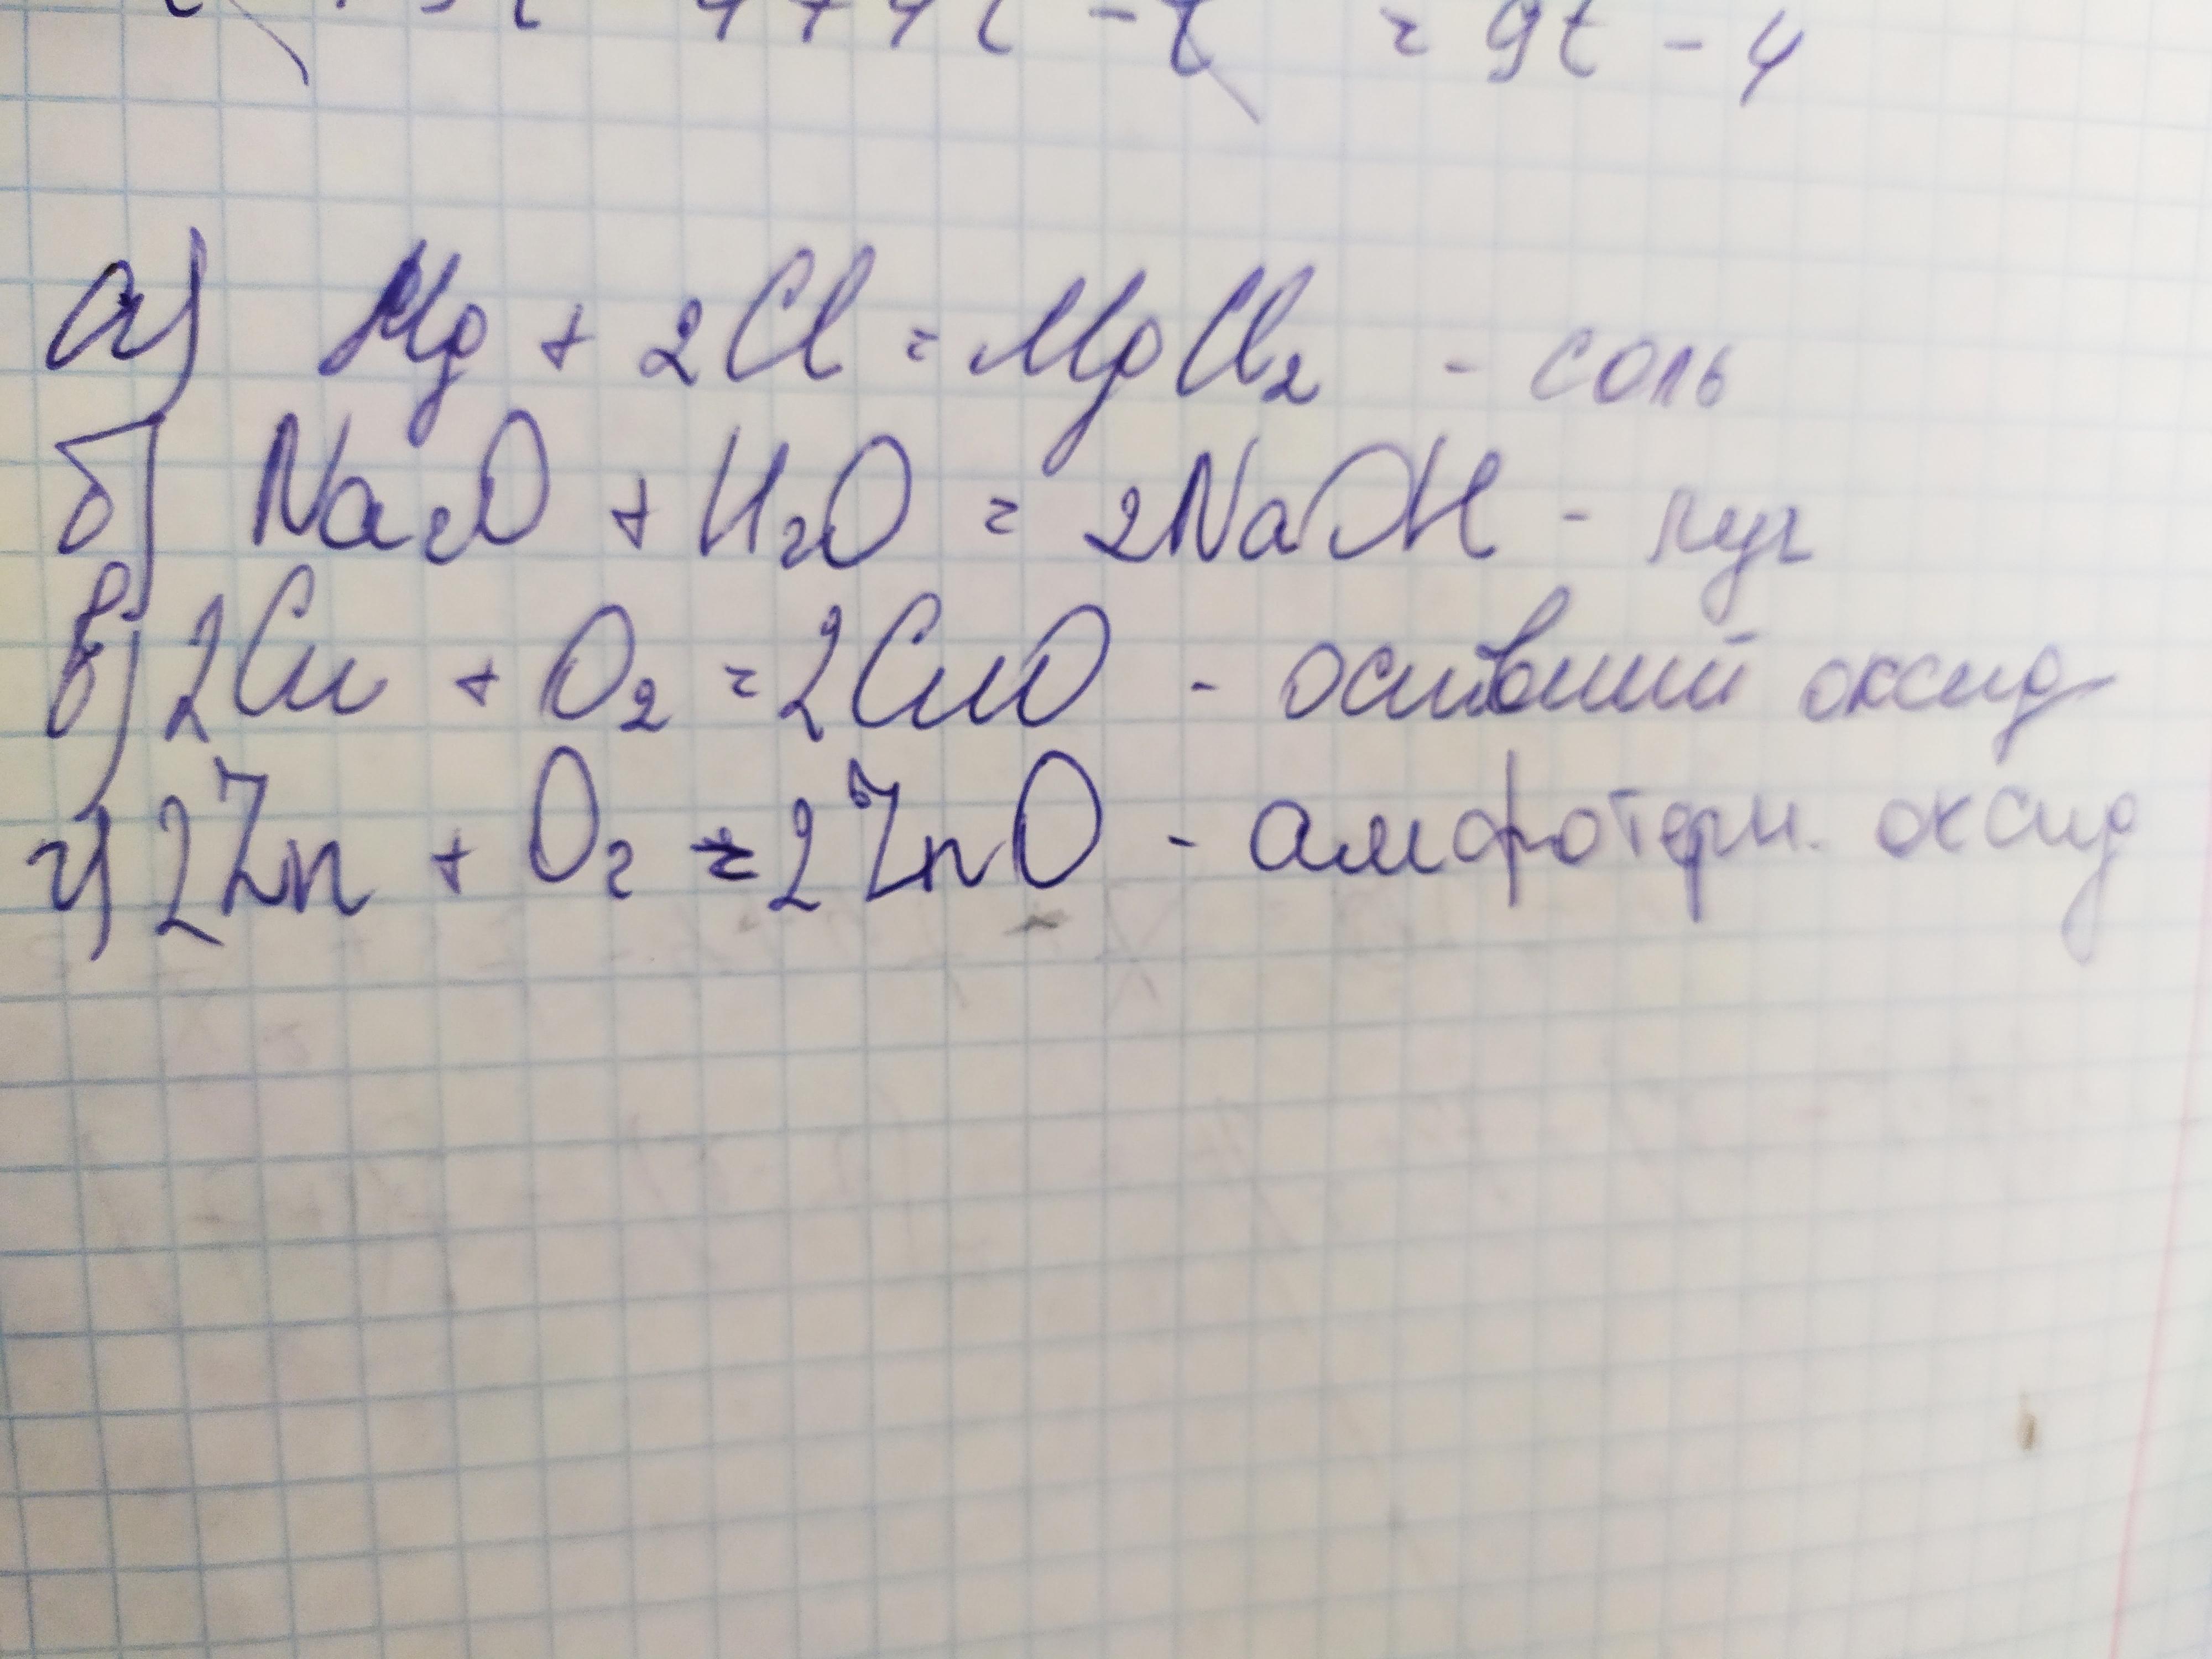 = 9t - 4
а) Mg + 2Cl = MgCl₂ - соль
б) Na₂O + H₂O = 2NaOH - луг
в) 2Cu + O₂ = 2CuO - оснòвний оксид
г) 2Zn + O₂ = 2ZnO - амфотерн. оксид